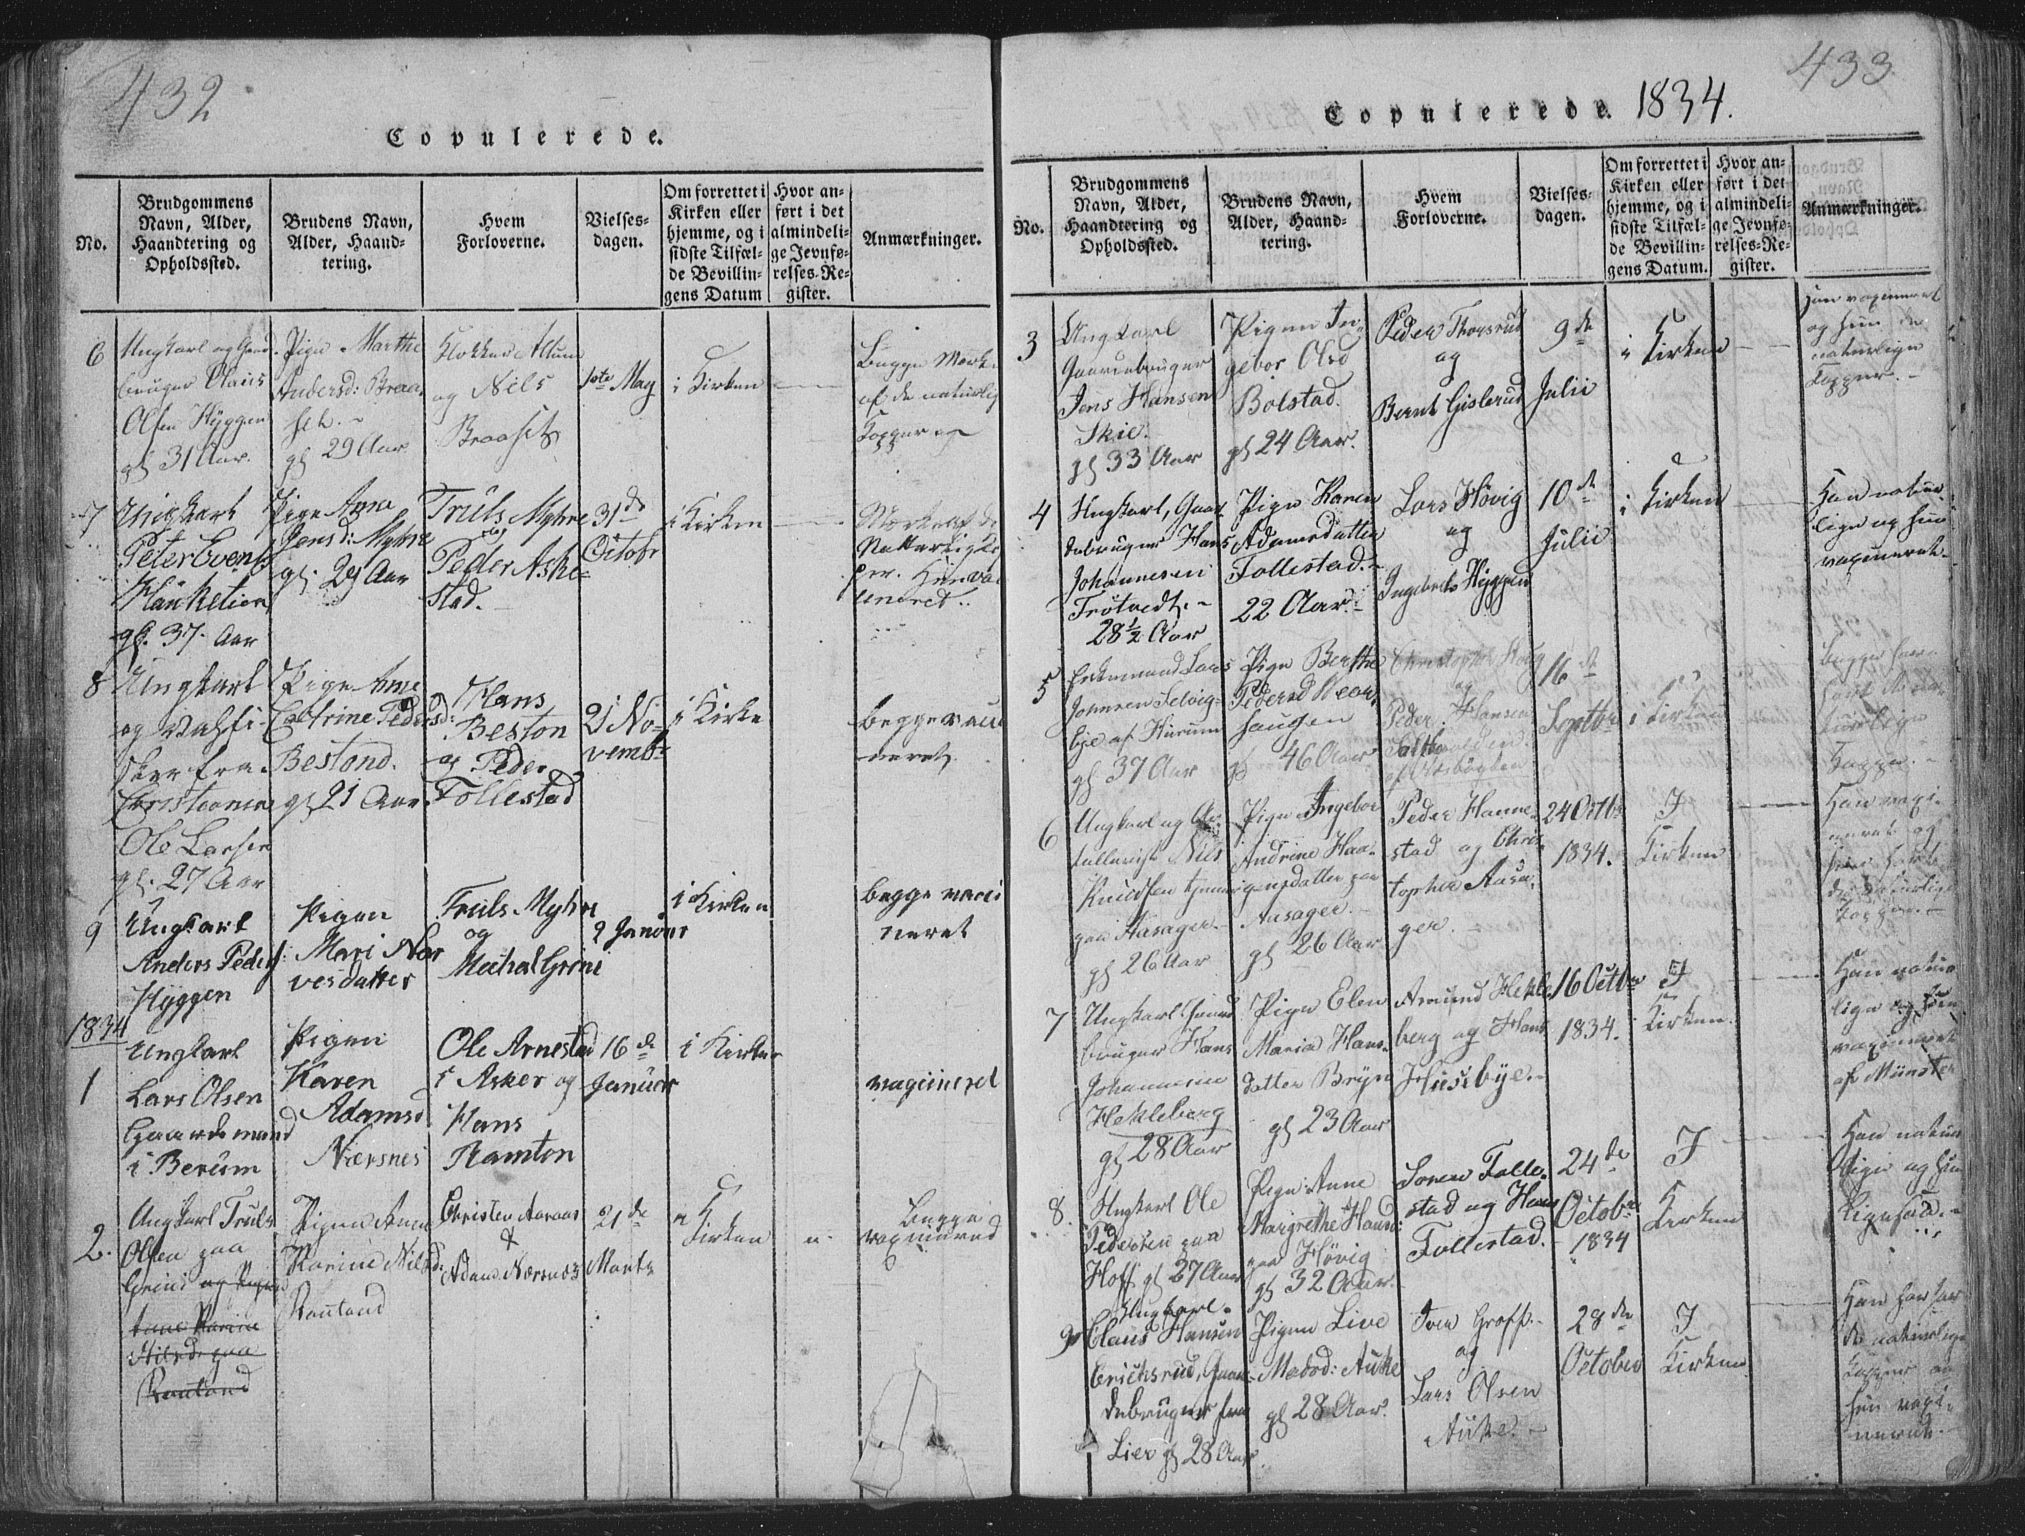 432
Copulerede.
No.
Brudgommens
Navn, Alder,
Haandtering og
Opholdssted.
Brudens Navn,
Alder, Haand-
tering.
Hvem
Forloverne.
Vielses-
dagen.
Om forrettet i
Kirken eller
hjemme, og i
sidste Tilfæl-
de Bevillin-
gens Datum
Hvor an-
ført i det
almindeli-
ge Jevnfø-
relses-Re-
gister.
Anmærkninger.
6
Ungkarl og Gaard
bruger Claus
Olsen Hyggen
gl 31 Aar.
Pige Marthe
Andersd: Braa
set.
gl 29 Aar
Klokker
og Niels
Braaset
1ste May
i Kirken
Begge Mærke
af de naturlig
Kopper
7
Ungkarl
Peter Evens:
gl. 37. Aar
Pige Anna
Jensd: Myhre
gl. 29 Aar
Truls Myhre
og
Peder Aske-
stad.
31 de
Octobr
i Kirken
8
Ungkarl
og
fra
Christiania
Ole Larsen
gl. 27 Aar
Pige Anne
Catrine Peders
Bestond.
gl 21 Aar
Hans
Beston
og Peder
Follestad
21 No-
vembr
i Kirke
begge vaci
neret
9
Ungkarl
Anders Peders:
Hyggen
Pigen
Mari Nar
vesdatter
Truls Myhre
og
Michal Grini
2 Januar
i Kirken
begge vaci
neret
1834
1
Ungkarl
Lars Olsen
Gaardemand
i Berum
Pigen
Karen
Adamsd
Nærsnes
Ole Arnestad
i Asker og
Hans
Ramton
16 de
Januar
i Kirken
vaccineret
2.
Ungkarl Truls
Olsen paa
Grini og Pigen
Anne Karine
Nilsd: paa
Rautand
Pigen Anne
Karine Nilsd:
Rautand
Christen Aaraas
&
Adam Nærsnes
21 de
Marts
i
Kirken
Begge
vaxinered
433
Copulerede. 1834.
No.
Brudgommens
Navn, Alder,
Haandtering og
Opholdssted.
Brudens Navn,
Alder, Haand-
tering.
Hvem
Forloverne.
Vielses-
dagen.
Om forrettet i
Kirken eller
hjemme, og i
sidste Tilfæl-
de Bevillin-
gens Datum.
Hvor an-
ført i det
almindeli-
ge Jevnfø-
relses-Re-
gister.
Anmærkninger.
3
Ungkarl
Gaardebruger
Jens Hansen
Skie.
gl 33 Aar
Pigen In-
gebor Olsd
Bolstad.
gl 24 Aar.
Peder Thorsrud
og
Bernt Gislerud
9 de
Julii
i Kirken
Han vaxineret
og hun de
naturlige
Kopper.
4
Ungkarl, Gaar-
debruger Hans
Johannesen
Trötvedt.
28 ½ Aar
Pigen Karen
Adamsdatter
Follestad.
22 Aar.
Lars Hövig
og
Ingebret Hyggen
10 de
Julii
i Kirken
Han natur-
lige og hun
vaxineret.
5
Enkemand Lars
Johnsen Selvig-
bje af Hurum
gl 37 Aar
Pigen Berthe
Pedersd
haugen
gl 46 Aar
Christopher
og
Peder Hansen
16 de
Septbr
i Kirken
Begge have
havt de na-
turlige
Kopper.
6
Ungkarl og
Nils
Knudsen
paa Aasager.
gl 26 Aar
Pigen Ingebor
Andrine Haa-
gensdatter paa
Aasager.
gl 26 Aar
Peder Hanne-
stad og Chris-
topher Aasa-
ger.
24 Octbr
1834.
I
Kirken
Han vaxi-
neret og
hun havt
de naturlige
Kopper.
7
Ungkarl
bruger Hans
Johannesen
Hekleberg
gl 28 Aar
Pigen Elen
Maria Hans-
datter Bryn
gl 23 Aar
Amund Hekle-
berg og Hans
Husebye.
16 Octbr
1834.
I
Kirken.
Han natur-
lige og hun
vaxineret
af Münster
8.
Ungkarl Ole
Pedersen paa
Hoff gl 27 Aar
Pigen Anne
Margrethe Hansd:
paa Hövig
gl 32 Aar.
Soren Folle-
stad og Hans
Follestad.
24 de
Octobr
1834
I
Kirken
Han natur-
lige og hun
ligesaa.
9
Ungkarl
Claus Hansen
Erichsrud, Gaar-
debruger fra
Lier gl 28 Aar.
Pigen Live
Madsd: Auke
gl 28 Aar.
Iver Groff.
og
Lars Olsen
Auke.
28 de
October
I
Kirken
Han har har
de naturlige
Kopper og
hun vaxi-
neret.